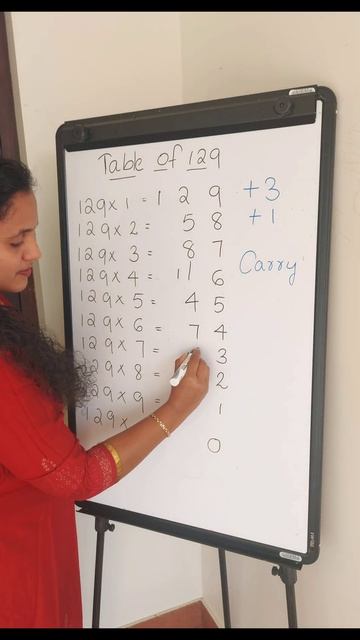 Table of 129
129 x 1 = 1 2 9 +3
129 x 2 = 5 8 +1
129 x 3 = 8 7
129 x 4 = 11 6 Carry
129 x 5 = 4 5
129 x 6 = 7 4
129 x 7 = 3
129 x 8 = 2
129 x 9 = 1
129 x 0